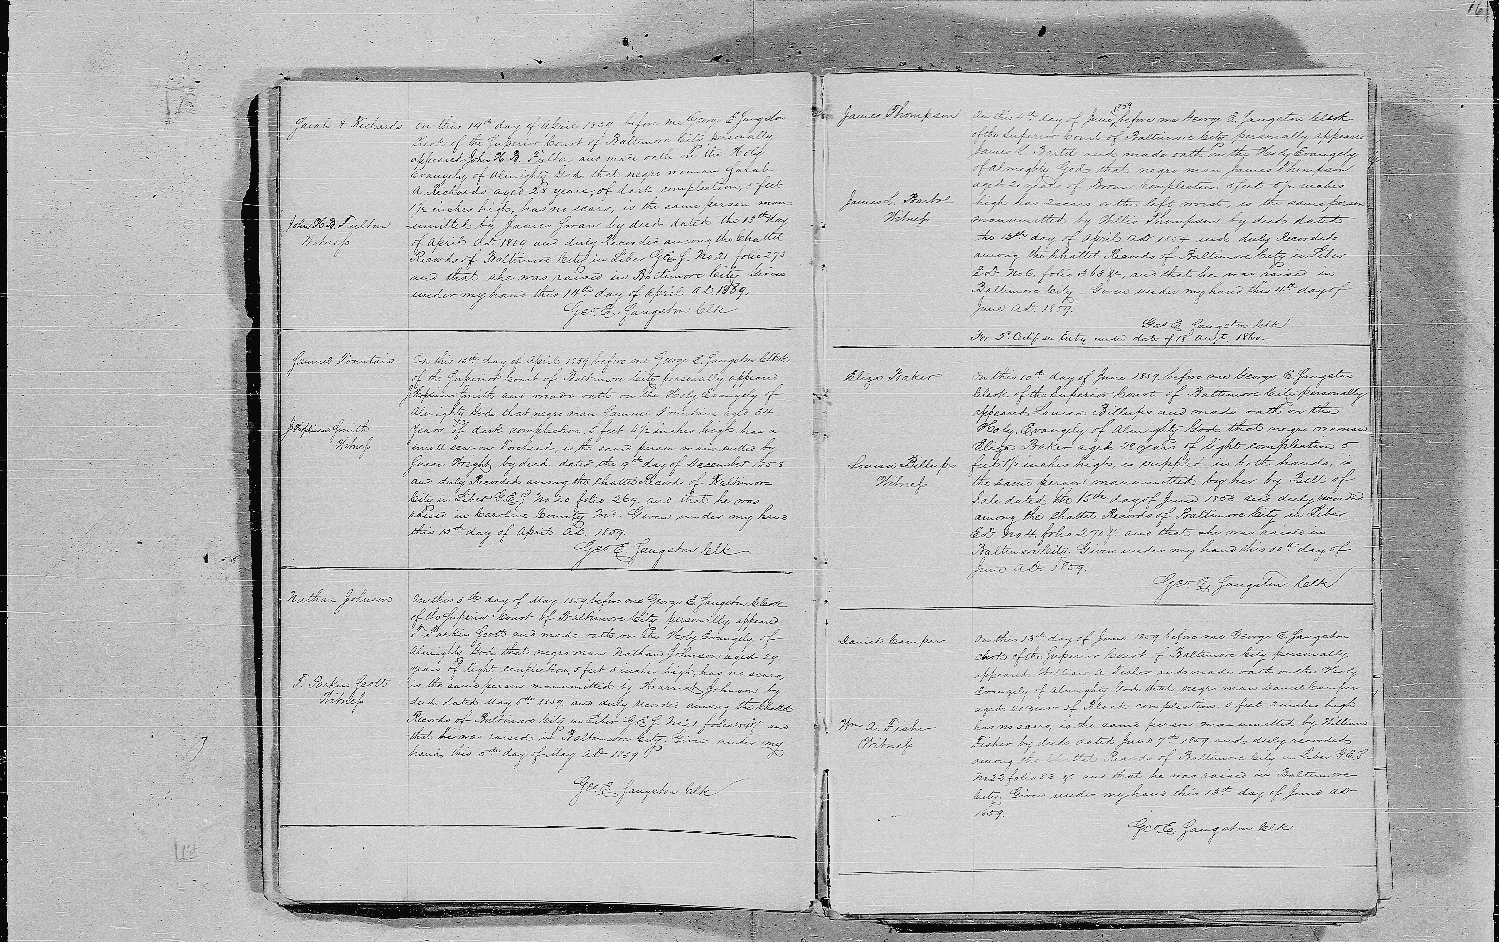 Sarah A Richards
On this 14th day of April 1859 before me George E. Sangston
Clerk of the Superior Court of Baltimore City personally
appeared John H. B. Fulton and made oath on the Holy
Evangely of Almighty God that negro woman Sarah
A Richards aged 28 years, of dark complection, 5 feet
1½ inches high, has no scars, is the same person man-
John H. B. Fulton
Witness
umitted by James Swan by deed dated the 13th day
of April AD and duly Recorded among the Chattel
Records of Baltimore City in Liber G.E.S. No. 21 folio 273
and that she was raised in Baltimore City Given
under my hand this 14th day of April AD. 1859.
Geo. E. Sangston Clk
Samuel Fountain
On this 15th day of April 1859 before me George E. Sangston Clerk
of the Superior Court of Baltimore City personally appeared
Smith and made oath on the Holy Evangely of
Almighty God that negro man Samuel Fountain aged 54
Smith
Witness
years of dark complection, 5 feet 6½ inches high has a
small scar on forehead, is the same person manumitted by
Wright by deed dated the 9th day of December
and duly Recorded among the Chattel Records of Baltimore
City in Liber G.E.S. No 20 folio 267 and that he was
raised in Caroline County Md. Given under my hand
this 15th day of April AD. 1859.
Geo E. Sangston Clk
Nathan Johnson
On this 5th day of May 1859 before me George E. Sangston Clerk
of the Superior Court of Baltimore City personally appeared
T. Parkin Scott and made oath on the Holy Evangely of
Almighty God that negro man Nathan Johnson aged 29
years of light complection, 5 feet inches high, has no scars,
T. Parkin Scott
Witness
is the same person manumitted by Johnson by
deed dated May 5th 1859 and duly recorded among the Chattel
Records of Baltimore City in Liber G.E.S. No 21 folio and
that he was raised in Baltimore City. Given under my
hand this 5th day of May AD. 1859
Geo E. Sangston Clk
James Thompson
1859
On this 4th day of June before me George E. Sangston Clerk
of the Superior Court of Baltimore City personally appeared
James L. Bartol and made oath on the Holy Evangely
of Almighty God that negro man James Thompson
aged years of brown complection 5 feet inches
James L. Bartol
Witness
high has 2 scars on the left wrist, is the same person
manumitted by Thompson by deed dated
the 13th day of April AD 1854 and duly Recorded
among the Chattel Records of Baltimore City in Liber
Ed. No 6. folio 363 &c, and that he was raised in
Baltimore City Given under my hand this 4th day of
June AD. 1859.
Geo E. Sangston Clk
For 2d Certif see Entry under date of 18 Augt. 1860.
Eliza Baker
On this 10th day of June 1859 before me George E Sangston
Clerk of the Superior Court of Baltimore City personally
appeared Louisa Billups and made oath on the
Holy Evangely of Almighty God that negro woman
Eliza Baker aged years of light complection 5
Louisa Billups
Witness
feet inches high, is in both hands, is
the same person manumitted by her by Bill of
Sale dated the 15th day of June and duly recorded
among the Chattel Records of Baltimore City in Liber
Ed. No 4. folio 271 &c and that she was raised in
Baltimore City. Given under my hand this 10th day of
June AD. 1859.
Geo E. Sangston Clk
Daniel Camper
On this 13th day of June 1859 before me George E. Sangston
Clerk of the Superior Court of Baltimore City personally
appeared William A. Fisher and made oath on the Holy
Evangely of Almighty God that negro man Daniel Camper
aged years of Black complection, 5 feet inches high
Wm A. Fisher
Witness
has no scars, is the same person manumitted by William
Fisher by deed dated June 7th 1859 and duly recorded
among the Chattel Records of Baltimore City in Liber G.E.S.
No 22 folio &c and that he was raised in Baltimore
City. Given under my hand this 13th day of June AD
1859.
Geo E. Sangston Clk